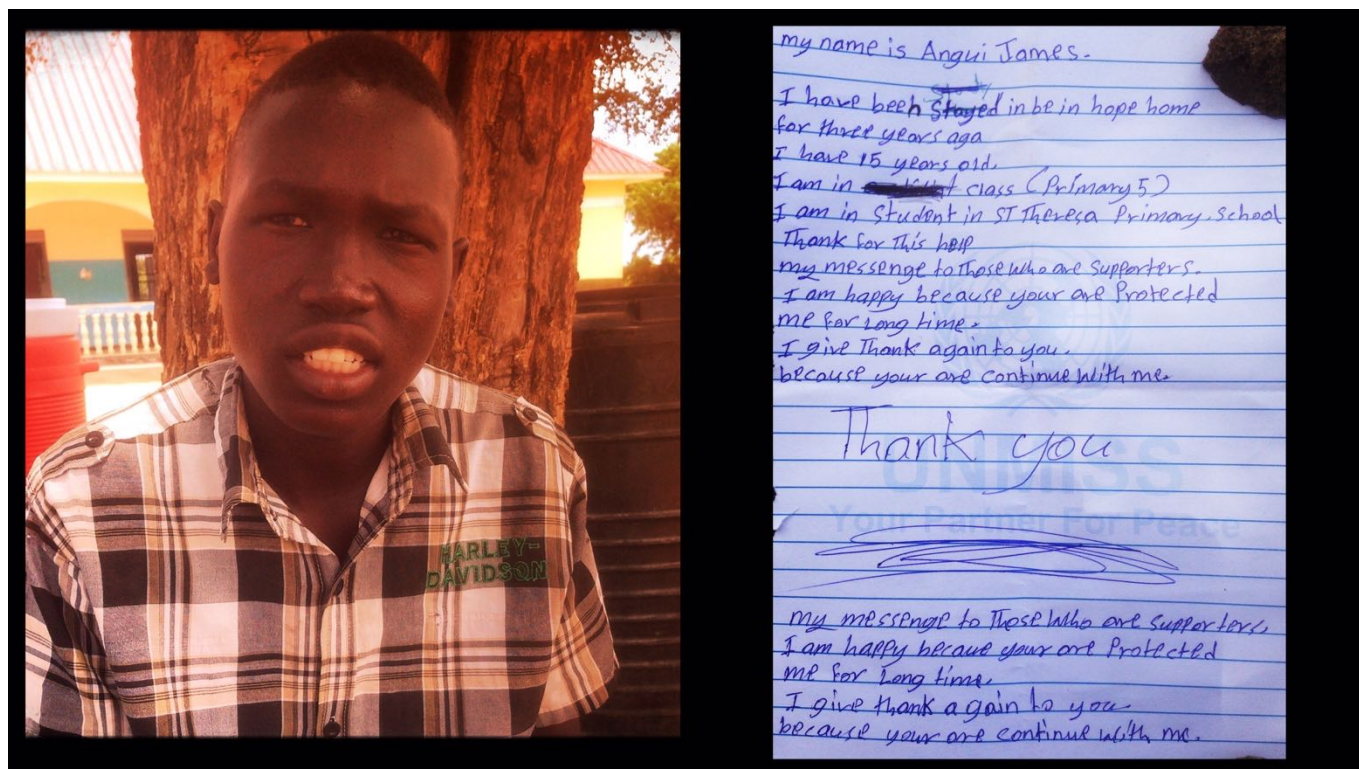 HARLEY-
DAVIDSON
my name is Angui James.
I have been stayed in be in hope home
for three years aga
I have 15 years old.
I am in class (Primary 5)
I am in Student in ST Theresa Primary School
Thank for This help
my messenge to Those who are Supporters.
I am happy because your are Protected
me for Long time.
I give Thank again to you.
because your are continue with me.
Thank you
UNMISS
Your Partner For Peace
my messenge to Those who are supporters,
I am happy becaue your are Protected
me for Long time.
I give thank again to you
because your are continue with me.